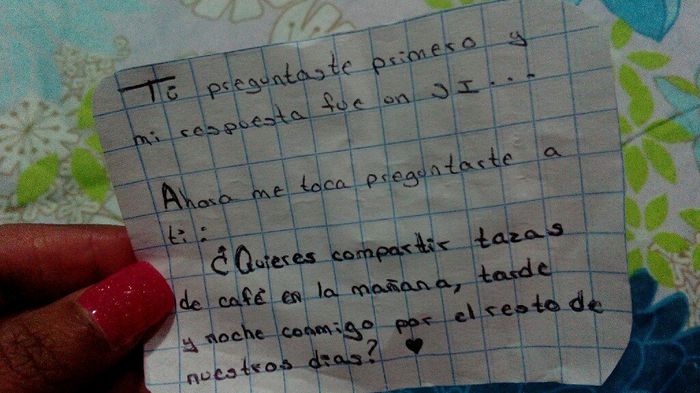 Tú preguntaste primero y
mi respuesta fue un SI...
Ahora me toca preguntarte a
ti:
¿Quieres compartir tazas
de café en la mañana, tarde
y noche conmigo por el resto de
nuestros días? ♥